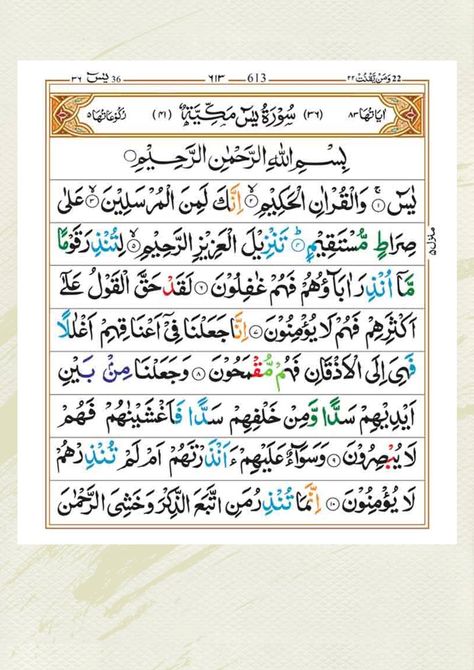 يٰسٓ 36 ٣٦ ٦١٣ 613 وَمَنْ يَّقْنُتْ 22 ٢٢
اٰيَاتُهَا ٨٣ (٣٦) سُوْرَةُ يٰسٓ مَكِّيَّةٌ (٤١) رُكُوْعَاتُهَا ٥
بِسْمِ اللّٰهِ الرَّحْمٰنِ الرَّحِيْمِ
يٰسٓ ۝١ وَالْقُرْاٰنِ الْحَكِيْمِ ۝٢ اِنَّكَ لَمِنَ الْمُرْسَلِيْنَ ۝٣ عَلٰى
صِرَاطٍ مُّسْتَقِيْمٍ ۝٤ تَنْزِيْلَ الْعَزِيْزِ الرَّحِيْمِ ۝٥ لِتُنْذِرَ قَوْمًا
مَّآ اُنْذِرَ اٰبَآؤُهُمْ فَهُمْ غٰفِلُوْنَ ۝٦ لَقَدْ حَقَّ الْقَوْلُ عَلٰٓى
اَكْثَرِهِمْ فَهُمْ لَا يُؤْمِنُوْنَ ۝٧ اِنَّا جَعَلْنَا فِيْٓ اَعْنَاقِهِمْ اَغْلٰلًا
فَهِيَ اِلَى الْاَذْقَانِ فَهُمْ مُّقْمَحُوْنَ ۝٨ وَجَعَلْنَا مِنْۢ بَيْنِ
اَيْدِيْهِمْ سَدًّا وَّمِنْ خَلْفِهِمْ سَدًّا فَاَغْشَيْنٰهُمْ فَهُمْ
لَا يُبْصِرُوْنَ ۝٩ وَسَوَآءٌ عَلَيْهِمْ ءَاَنْذَرْتَهُمْ اَمْ لَمْ تُنْذِرْهُمْ
لَا يُؤْمِنُوْنَ ۝١٠ اِنَّمَا تُنْذِرُ مَنِ اتَّبَعَ الذِّكْرَ وَخَشِيَ الرَّحْمٰنَ
منزل ٥